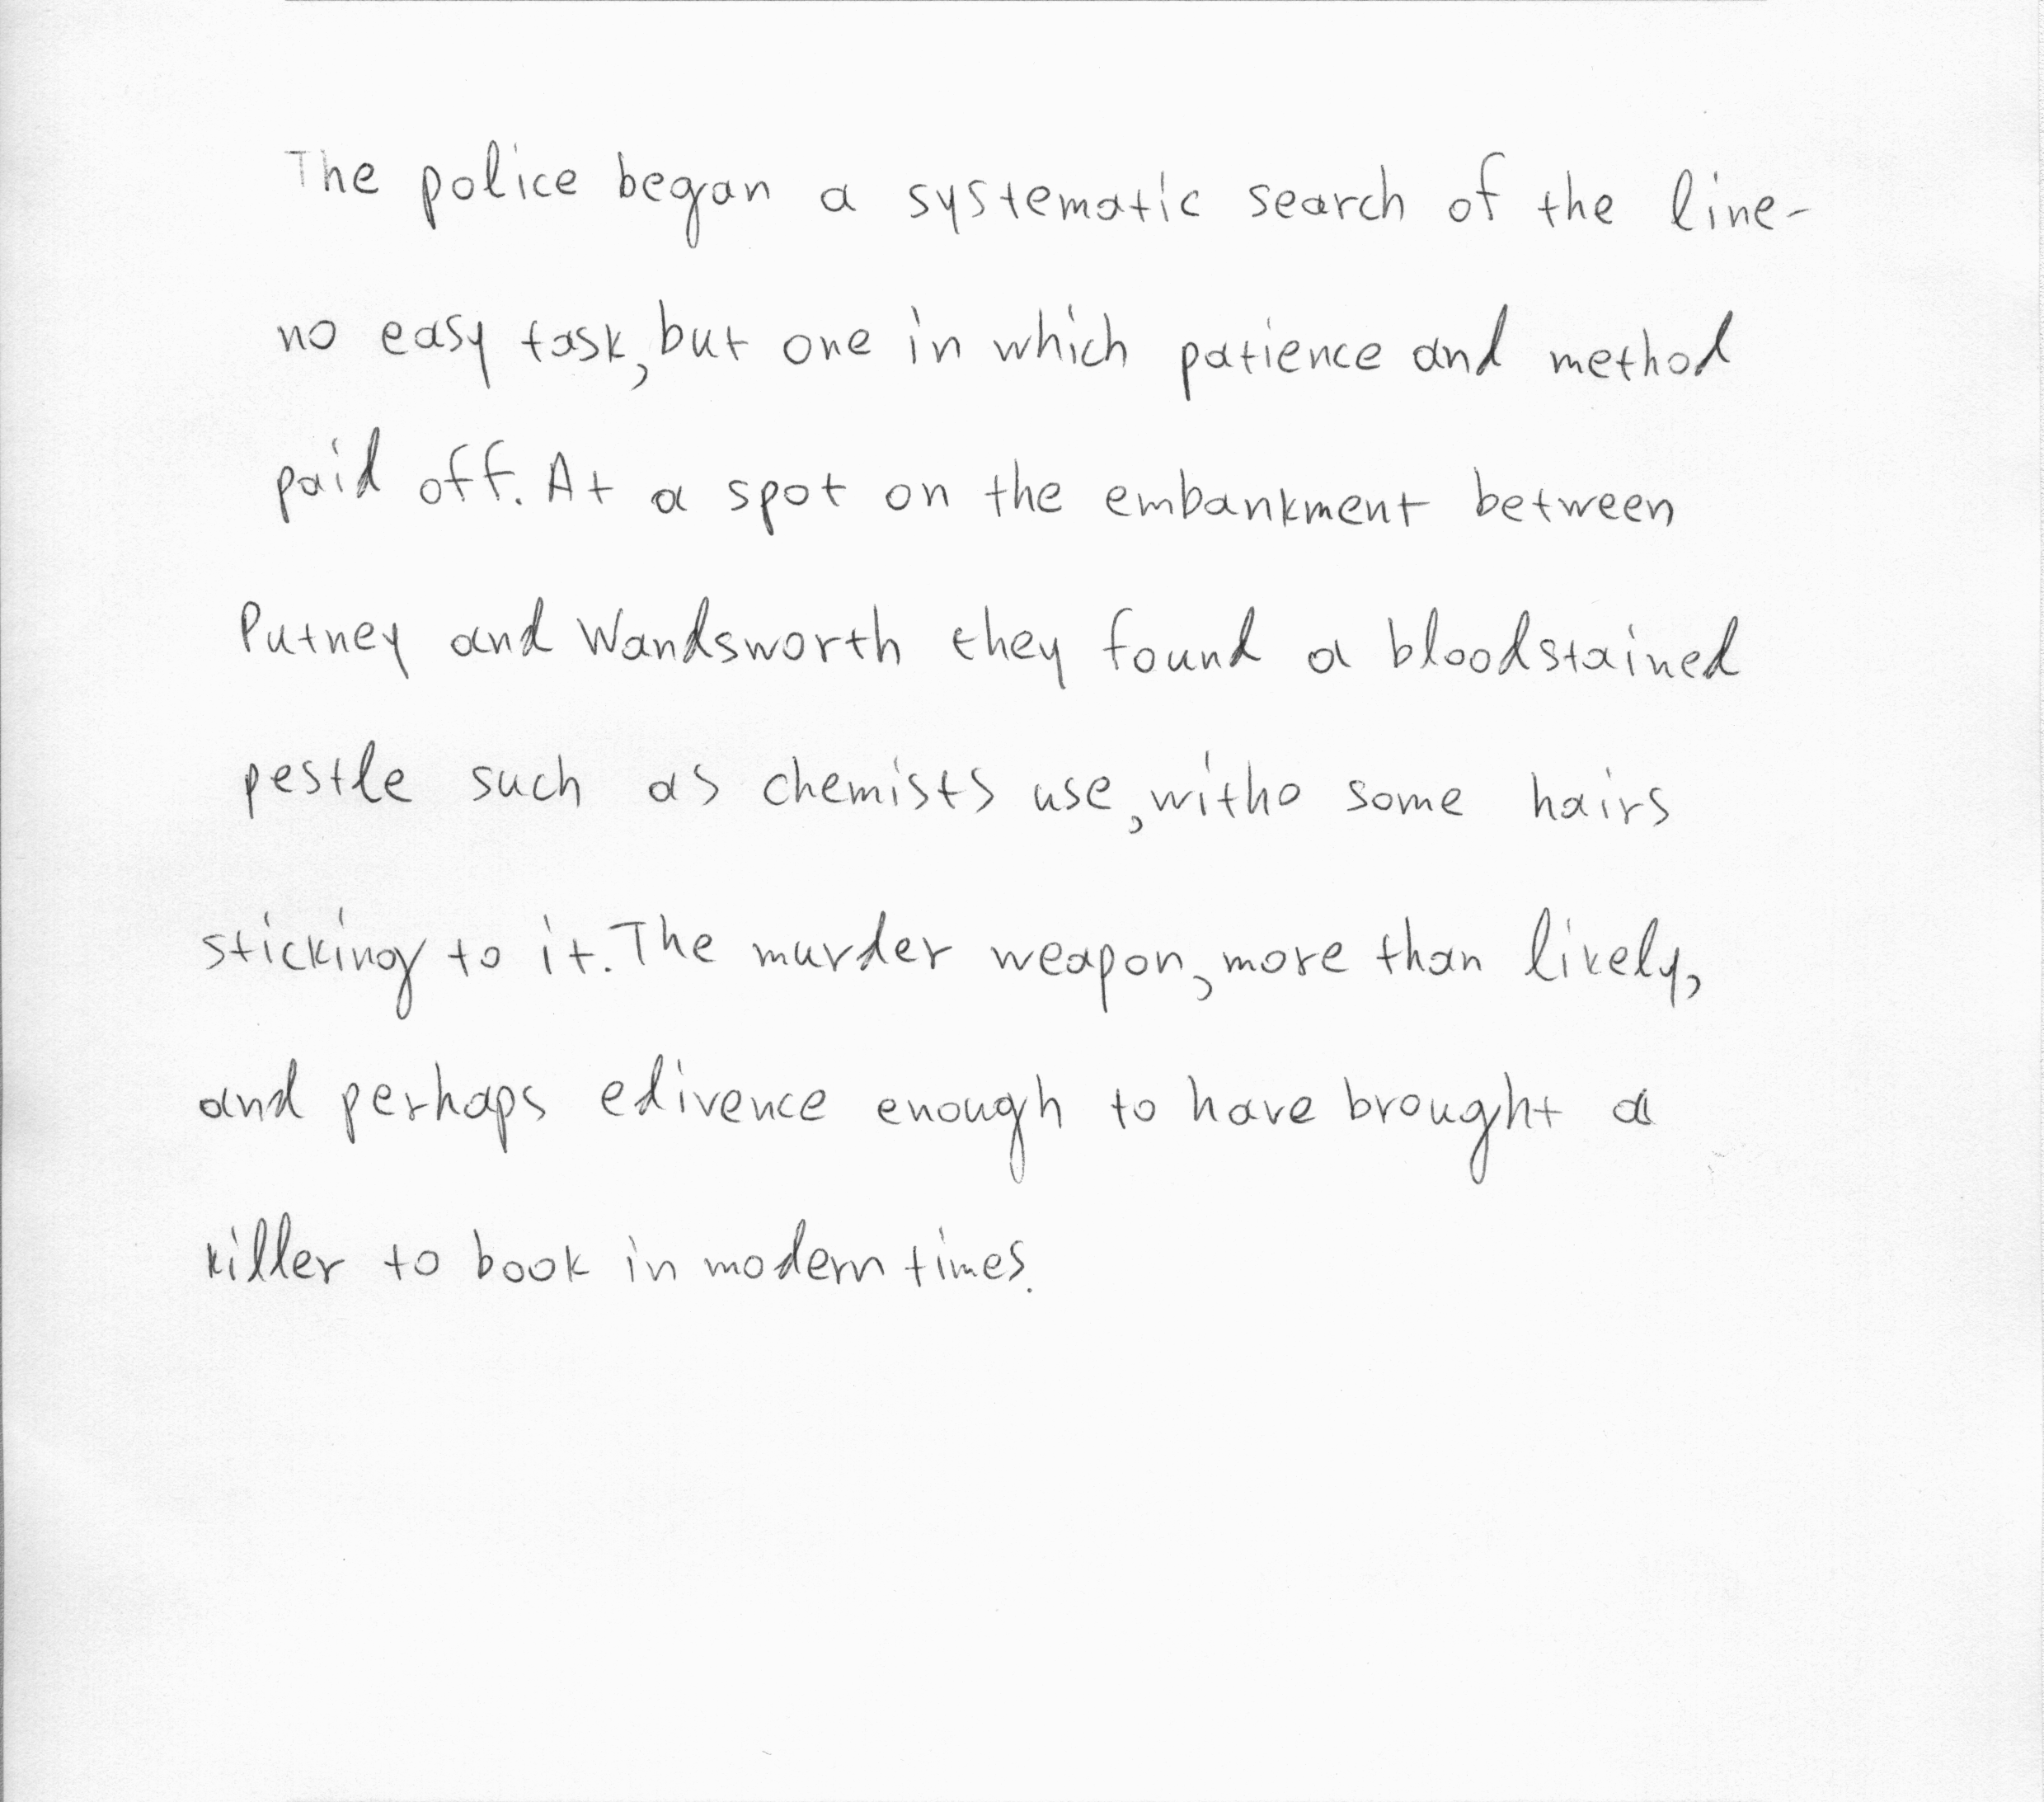 The police began a systematic search of the line-
no easy task, but one in which patience and method
paid off. At a spot on the embankment between
Putney and Wandsworth they found a bloodstained
pestle such as chemists use, witho some hairs
sticking to it. The murder weapon, more than likely,
and perhaps edivence enough to have brought a
killer to book in modern times.